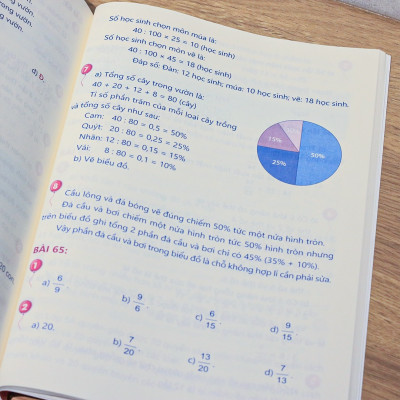 ong vườn.
rong vườn.
g vườn.
d) D.
Số học sinh chọn môn múa là:
40 : 100 × 25 = 10 (học sinh)
Số học sinh chọn môn vẽ là:
40 : 100 × 45 = 18 (học sinh)
Đáp số: Đàn: 12 học sinh; múa: 10 học sinh; vẽ: 18 học sinh.
7
a) Tổng số cây trong vườn là:
40 + 20 + 12 + 8 = 80 (cây)
Tỉ số phần trăm của mỗi loại cây trồng
và tổng số cây như sau:
Cam: 40 : 80 = 0,5 = 50%
Quýt: 20 : 80 = 0,25 = 25%
Nhãn: 12 : 80 = 0,15 = 15%
Vải: 8 : 80 = 0,1 = 10%
b) Vẽ biểu đồ.
15%
50%
25%
8
Cầu lông và đá bóng vẽ đúng chiếm 50% tức một nửa hình tròn.
Đá cầu và bơi chiếm một nửa hình tròn tức 50% hình tròn nhưng
trên biểu đồ ghi tổng 2 phần đá cầu và bơi chỉ có 45% (35% + 10%).
Vậy phần đá cầu và bơi trong biểu đồ là chỗ không hợp lí cần phải sửa.
BÀI 65:
1
a) 6/9.
b) 9/6.
c) 6/15.
d) 9/15.
2
a) 20.
b) 7/20.
c) 13/20.
d) 7/13